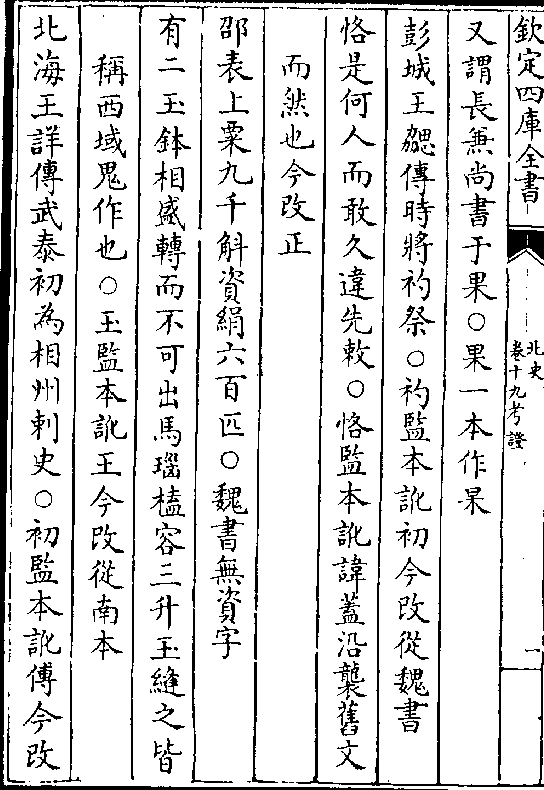 欽定四庫全書
北史
卷十九考證
一
又謂長兼尚書于果○果一本作杲
彭城王勰傳時將礿祭○礿監本訛初今改從魏書
恪是何人而敢久違先敕○恪監本訛諱蓋沿襲舊文
而然也今改正
邵表上粟九千斛資絹六百匹○魏書無資字
有二玉鉢相盛轉而不可出馬瑙榼容三升玉縫之皆
稱西域鬼作也○玉監本訛王今改從南本
北海王詳傳武泰初為相州刺史○初監本訛傅今改